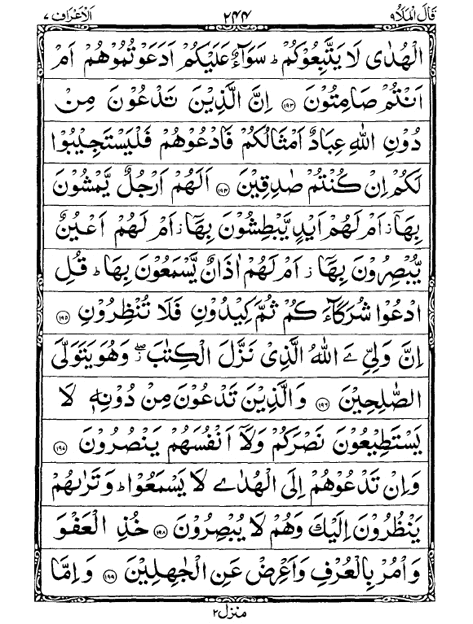 قَالَ الْمَلَاُ ٩ ٢٤٤ اَلْاَعْرَاف ٧
الْهُدٰى لَا يَتَّبِعُوْكُمْ ؕ سَوَآءٌ عَلَيْكُمْ اَدَعَوْتُمُوْهُمْ اَمْ
اَنْتُمْ صَامِتُوْنَ ﴿۱۹۳﴾ اِنَّ الَّذِيْنَ تَدْعُوْنَ مِنْ
دُوْنِ اللّٰهِ عِبَادٌ اَمْثَالُكُمْ فَادْعُوْهُمْ فَلْيَسْتَجِيْبُوْا
لَكُمْ اِنْ كُنْتُمْ صٰدِقِيْنَ ﴿۱۹۴﴾ اَلَهُمْ اَرْجُلٌ يَّمْشُوْنَ
بِهَاۤ ز اَمْ لَهُمْ اَيْدٍ يَّبْطِشُوْنَ بِهَاۤ ز اَمْ لَهُمْ اَعْيُنٌ
يُّبْصِرُوْنَ بِهَاۤ ز اَمْ لَهُمْ اٰذَانٌ يَّسْمَعُوْنَ بِهَا ؕ قُلِ
ادْعُوْا شُرَكَآءَكُمْ ثُمَّ كِيْدُوْنِ فَلَا تُنْظِرُوْنِ ﴿۱۹۵﴾
اِنَّ وَلِيِّ ےَ اللّٰهُ الَّذِيْ نَزَّلَ الْكِتٰبَ ۖ وَهُوَ يَتَوَلَّى
الصّٰلِحِيْنَ ﴿۱۹۶﴾ وَالَّذِيْنَ تَدْعُوْنَ مِنْ دُوْنِهٖ لَا
يَسْتَطِيْعُوْنَ نَصْرَكُمْ وَلَاۤ اَنْفُسَهُمْ يَنْصُرُوْنَ ﴿۱۹۷﴾
وَاِنْ تَدْعُوْهُمْ اِلَى الْهُدٰے لَا يَسْمَعُوْا ؕ وَتَرٰىهُمْ
يَنْظُرُوْنَ اِلَيْكَ وَهُمْ لَا يُبْصِرُوْنَ ﴿۱۹۸﴾ خُذِ الْعَفْوَ
وَاْمُرْ بِالْعُرْفِ وَاَعْرِضْ عَنِ الْجٰهِلِيْنَ ﴿۱۹۹﴾ وَاِمَّا
منزل ٢